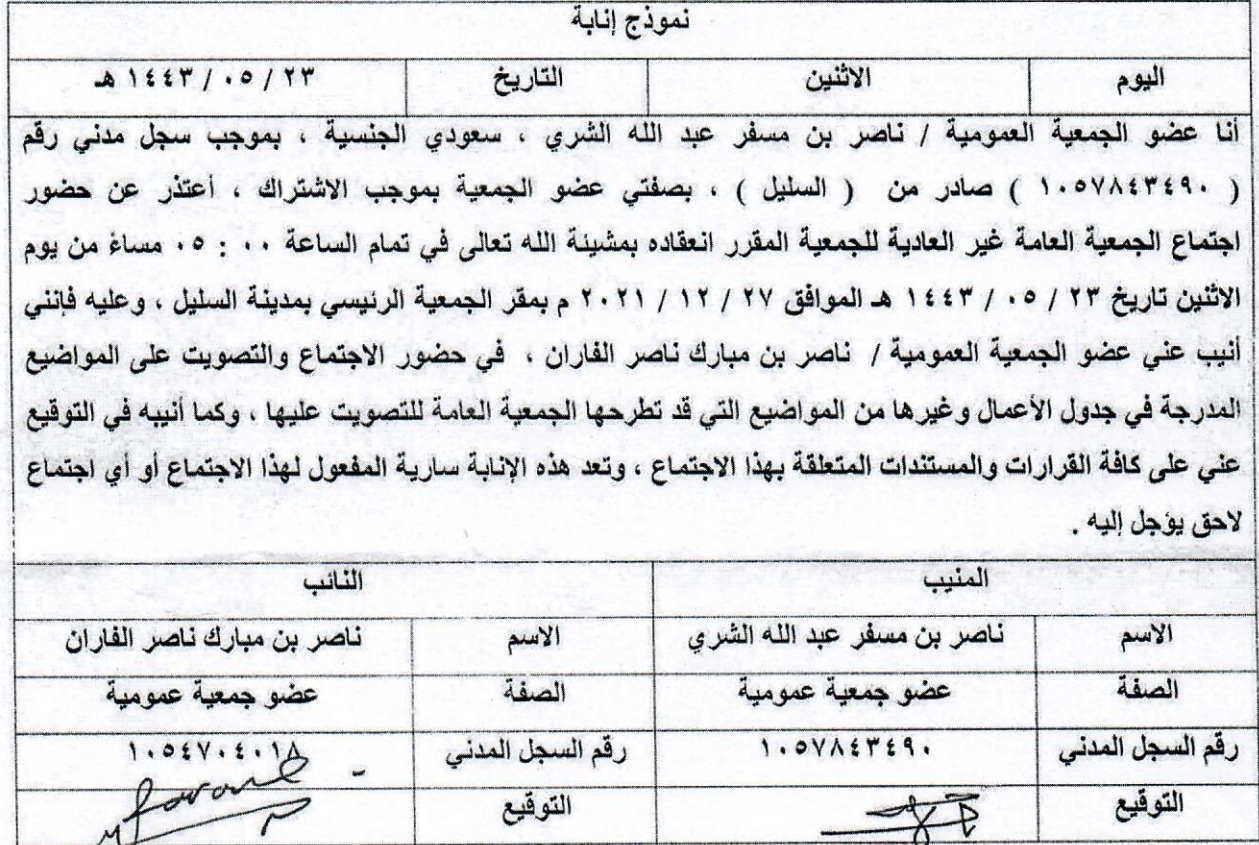 نموذج إنابة
اليوم الاثنين التاريخ ٢٣ / ٠٥ / ١٤٤٣ هـ
أنا عضو الجمعية العمومية / ناصر بن مسفر عبد الله الشري ، سعودي الجنسية ، بموجب سجل مدني رقم
( ١٠٥٧٨٤٣٤٩٠ ) صادر من ( السليل ) ، بصفتي عضو الجمعية بموجب الاشتراك ، أعتذر عن حضور
اجتماع الجمعية العامة غير العادية للجمعية المقرر انعقاده بمشيئة الله تعالى في تمام الساعة ٠٠ : ٠٥ مساءً من يوم
الاثنين تاريخ ٢٣ / ٠٥ / ١٤٤٣ هـ الموافق ٢٧ / ١٢ / ٢٠٢١ م بمقر الجمعية الرئيسي بمدينة السليل ، وعليه فإنني
أنيب عني عضو الجمعية العمومية / ناصر بن مبارك ناصر الفاران ، في حضور الاجتماع والتصويت على المواضيع
المدرجة في جدول الأعمال وغيرها من المواضيع التي قد تطرحها الجمعية العامة للتصويت عليها ، وكما أنيبه في التوقيع
عني على كافة القرارات والمستندات المتعلقة بهذا الاجتماع ، وتعد هذه الإنابة سارية المفعول لهذا الاجتماع أو أي اجتماع
لاحق يؤجل إليه .
المنيب النائب
الاسم ناصر بن مسفر عبد الله الشري الاسم ناصر بن مبارك ناصر الفاران
الصفة عضو جمعية عمومية الصفة عضو جمعية عمومية
رقم السجل المدني ١٠٥٧٨٤٣٤٩٠ رقم السجل المدني ١٠٥٤٧٠٤٠١٨
التوقيع التوقيع